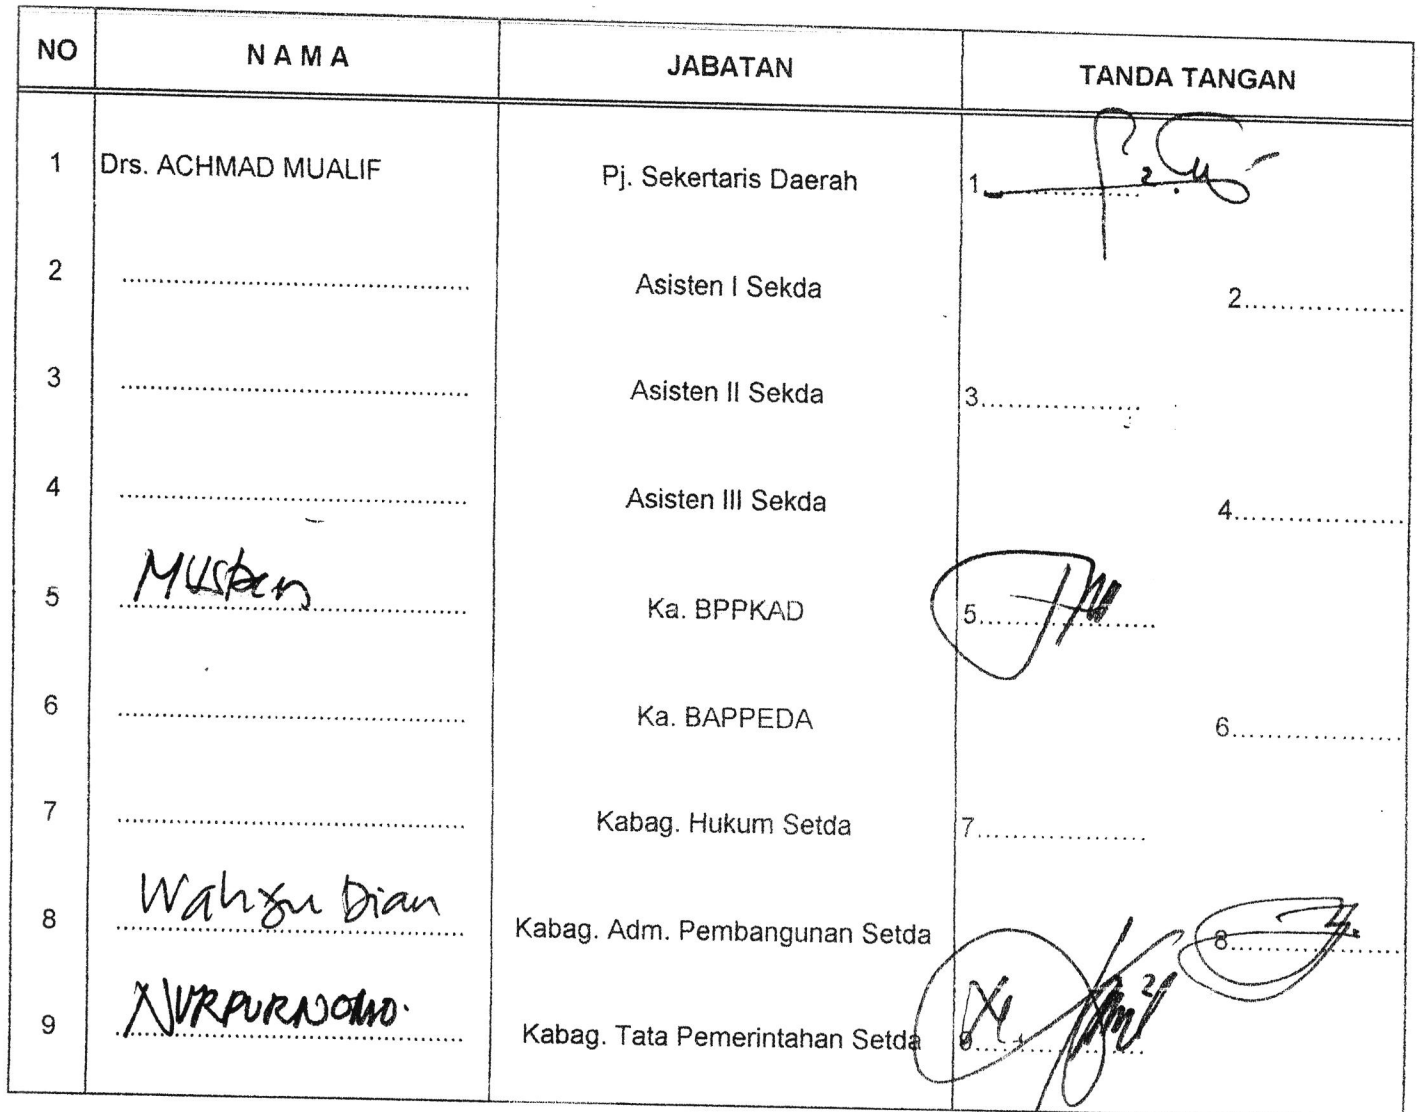 NO N A M A JABATAN TANDA TANGAN
1 Drs. ACHMAD MUALIF Pj. Sekertaris Daerah 1..................
2 .......................................... Asisten I Sekda 2..................
3 .......................................... Asisten II Sekda 3..................
4 .......................................... Asisten III Sekda 4..................
5 .......................................... Ka. BPPKAD 5..................
6 .......................................... Ka. BAPPEDA 6..................
7 .......................................... Kabag. Hukum Setda 7..................
8 Wahyu Dian Kabag. Adm. Pembangunan Setda 8..................
9 NURPURNOMO. Kabag. Tata Pemerintahan Setda 9..................